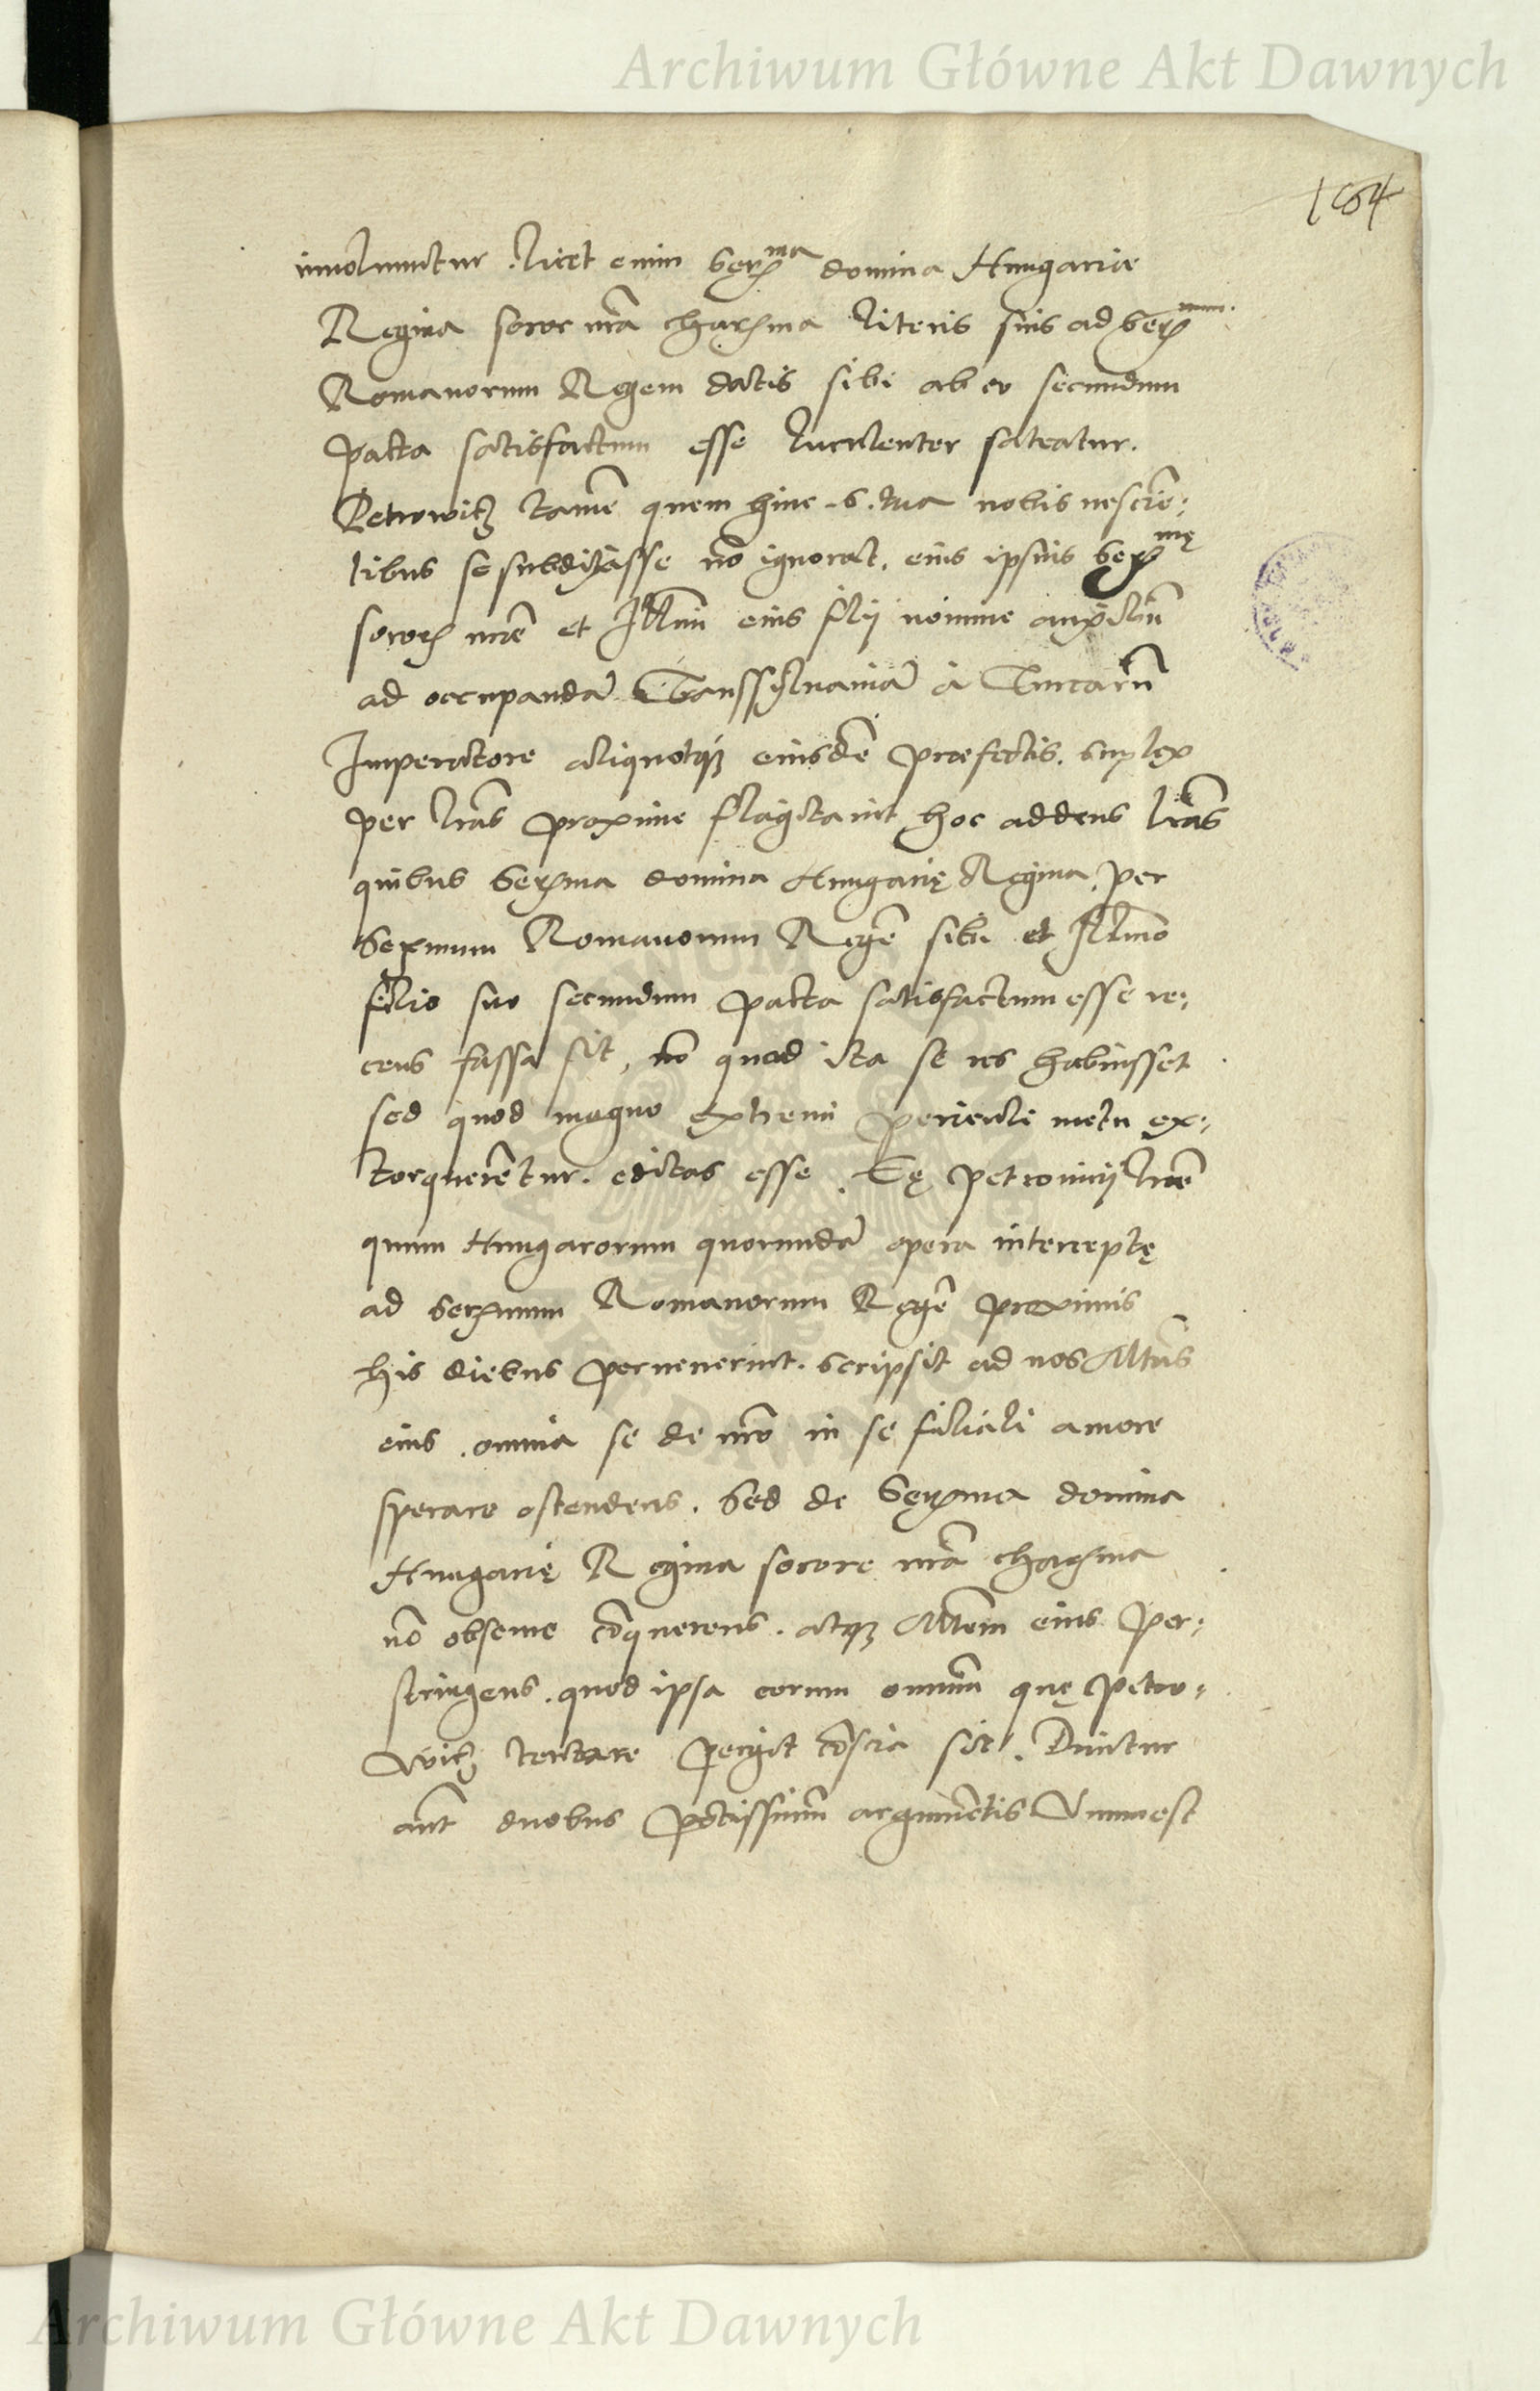 Archiwum Główne Akt Dawnych
164
inuoluuntur. licet enim Serᵐᵃ domina Hungariae
Regina soror nr̃a charma literis suis ad Serᵐᵘᵐ.
Romanorum Regem datis sibi ab eo secundum
pacta satisfactum esse luculenter fateatur.
Petrowitz tamẽ quem hinc S. tua nobis nescien:
tibus se subduxisse nõ ignorat. eius ipsius Serᵐę
soror nr̃e et Illmi eius filij nomine auxiliũ
ad occupandã Transsyluaniã à Turcarũ
Imperatore aliquotq́ʒ eiusdẽ praefectis. suplex
per lr̃as proxime flagitauit hoc addens lr̃as
quibus Serma domina Hungarię Regina, per
Sermum Romanorum Regẽ sibi et Illmo
filio suo secundum pacta satisfactum esse re:
cens fassa sit, nõ quod ita se res habuisset
sed quod magno extremi periculi metu ex:
torquerẽtur. editas esse. Eę Petrouicij lr̃e
quum Hungarorum quorundã opera interceptę
ad Sermum Romanorum Regẽ proximis
his diebus peruenerint. Scripsit ad nos Mtas
eius. omnia se de nr̃o in se filiali amore
sperare ostendens. Sed de Serma domina
Hungarię Regina sorore nr̃a charma
nõ obscure cõquerens. atqʒ Mtem eius per:
stringens. quod ipsa eorum omniũ quę Petro:
witz tentare pergit cõscia sit. Ducitur
aut̃ duobus potissimũ argumẽtis Vnum est
Archiwum Główne Akt Dawnych